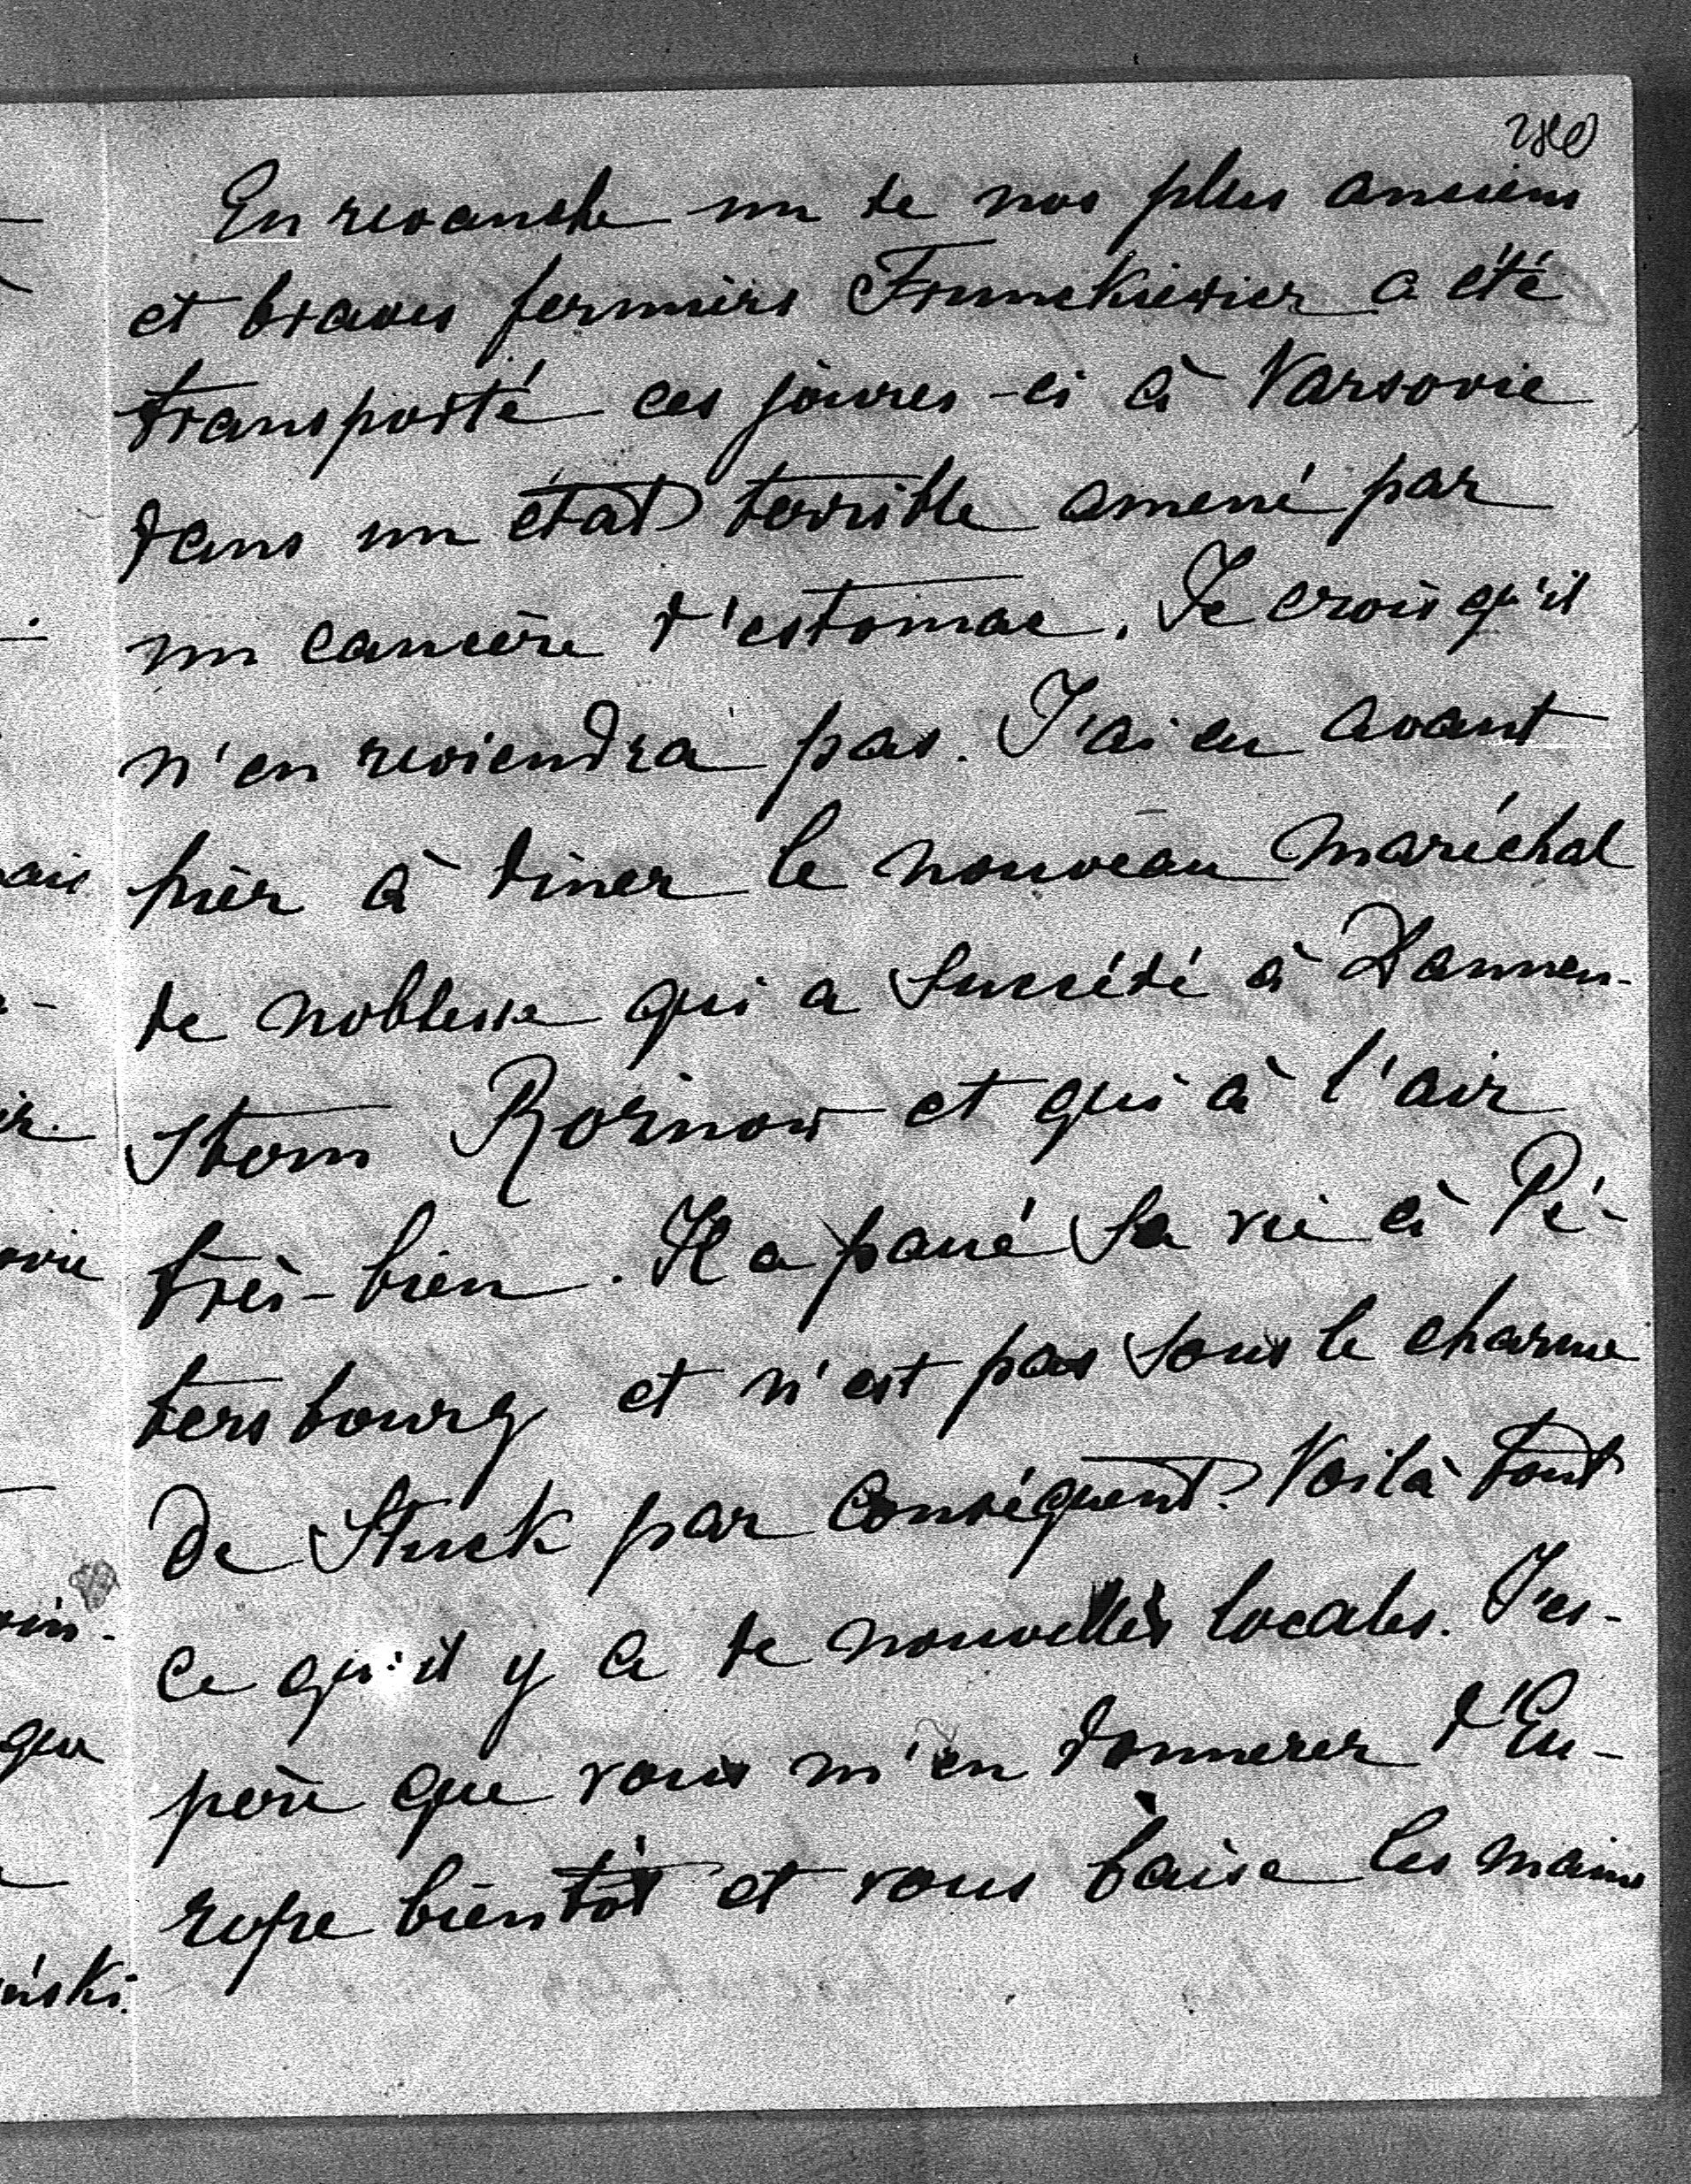 280
En revanche un de nos plus anciens
et braves fermiers Frunckiewicz a été
transporté ces jours-ci à Varsovie
dans un état terrible amené par
un cancère d'estomac. Je crois qu'il
n'en reviendra pas. J'ai eu avant
hier à diner le nouveau maréchal
de noblesse qui a succédé à Dannen-
stern Rosinow et qui à l'air
très-bien. Il a passé sa vie à Pé-
tersbourg et n'est pas sous le charme
de Stuck par conséquent. Voilà tout
ce qu'il y a de nouvelles locales. J'es-
père que vous m'en donnerez d'Eu-
rope bientôt et vous baise les mains
ais
r.
ovie
oin.
que
inski.